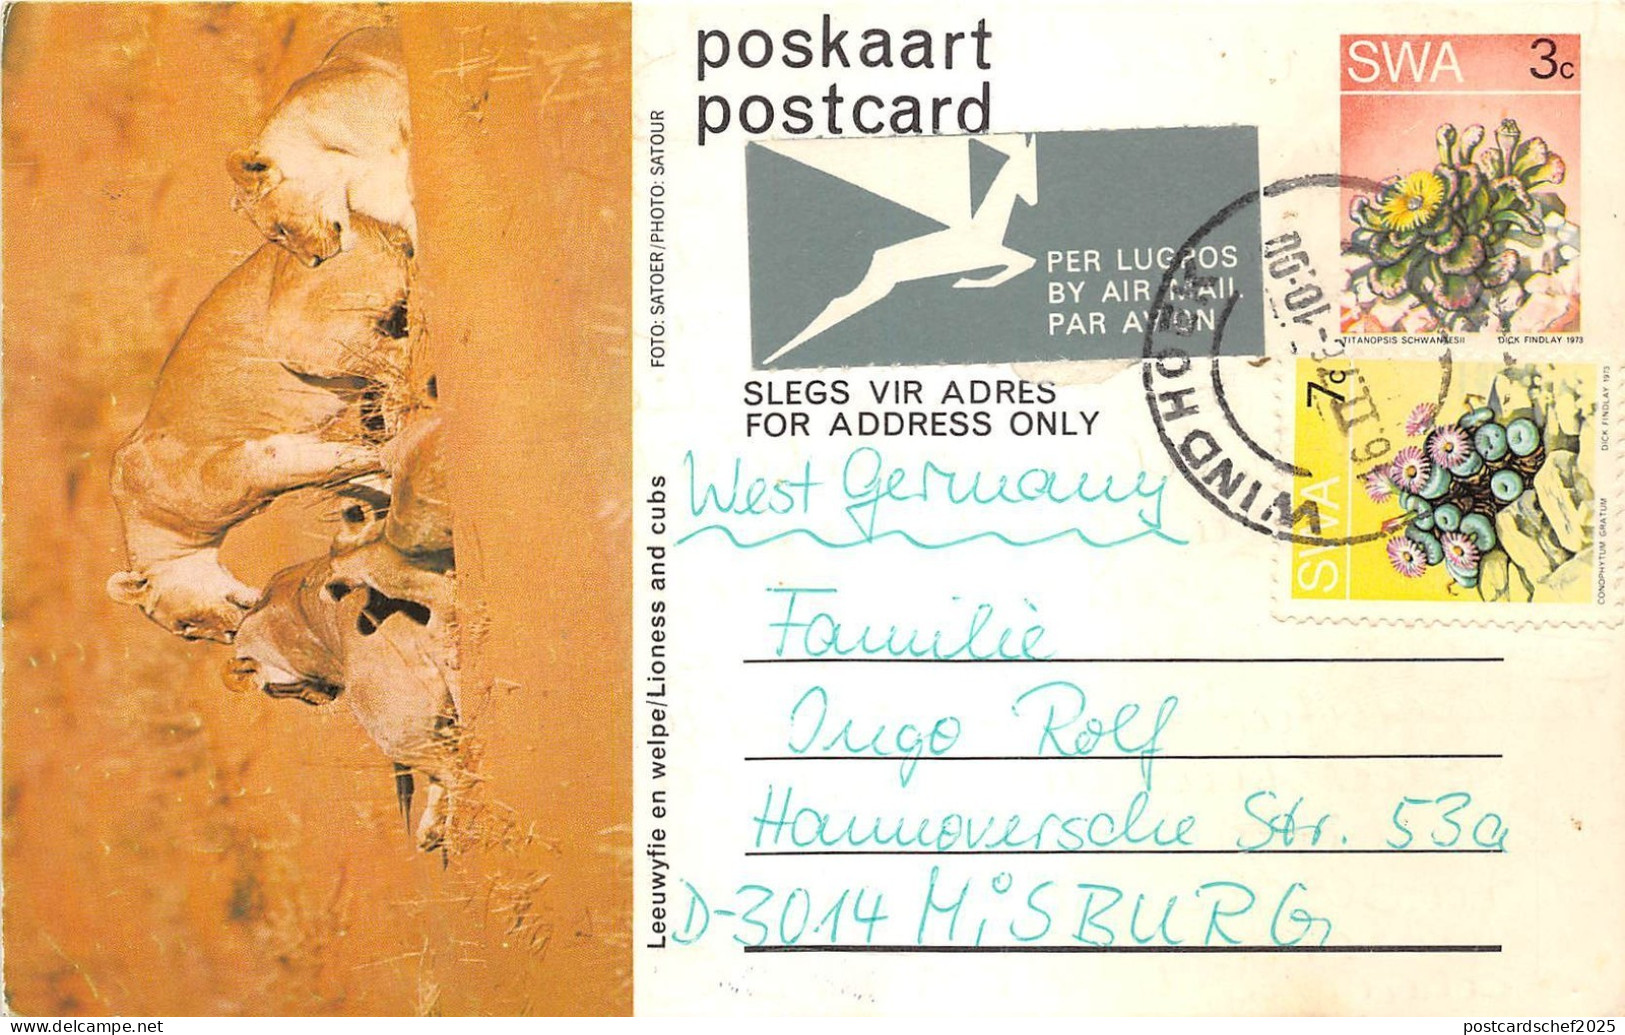 poskaart
postcard
SWA 3c
TITANOPSIS SCHWANTESII DICK FINDLAY 1973
PER LUGPOS
BY AIR MAIL
PAR AVION
SLEGS VIR ADRES
FOR ADDRESS ONLY
WINDHOEK
SWA 7c
CONOPHYTUM GRATUM DICK FINDLAY 1973
West Germany
Familie
Ingo Rolf
Hannoversche Str. 53a
D-3014 MiSBURG
FOTO: SATOER/PHOTO: SATOUR
Leeuwyfie en welpe/Lioness and cubs
www.delcampe.net
postcardschef2025